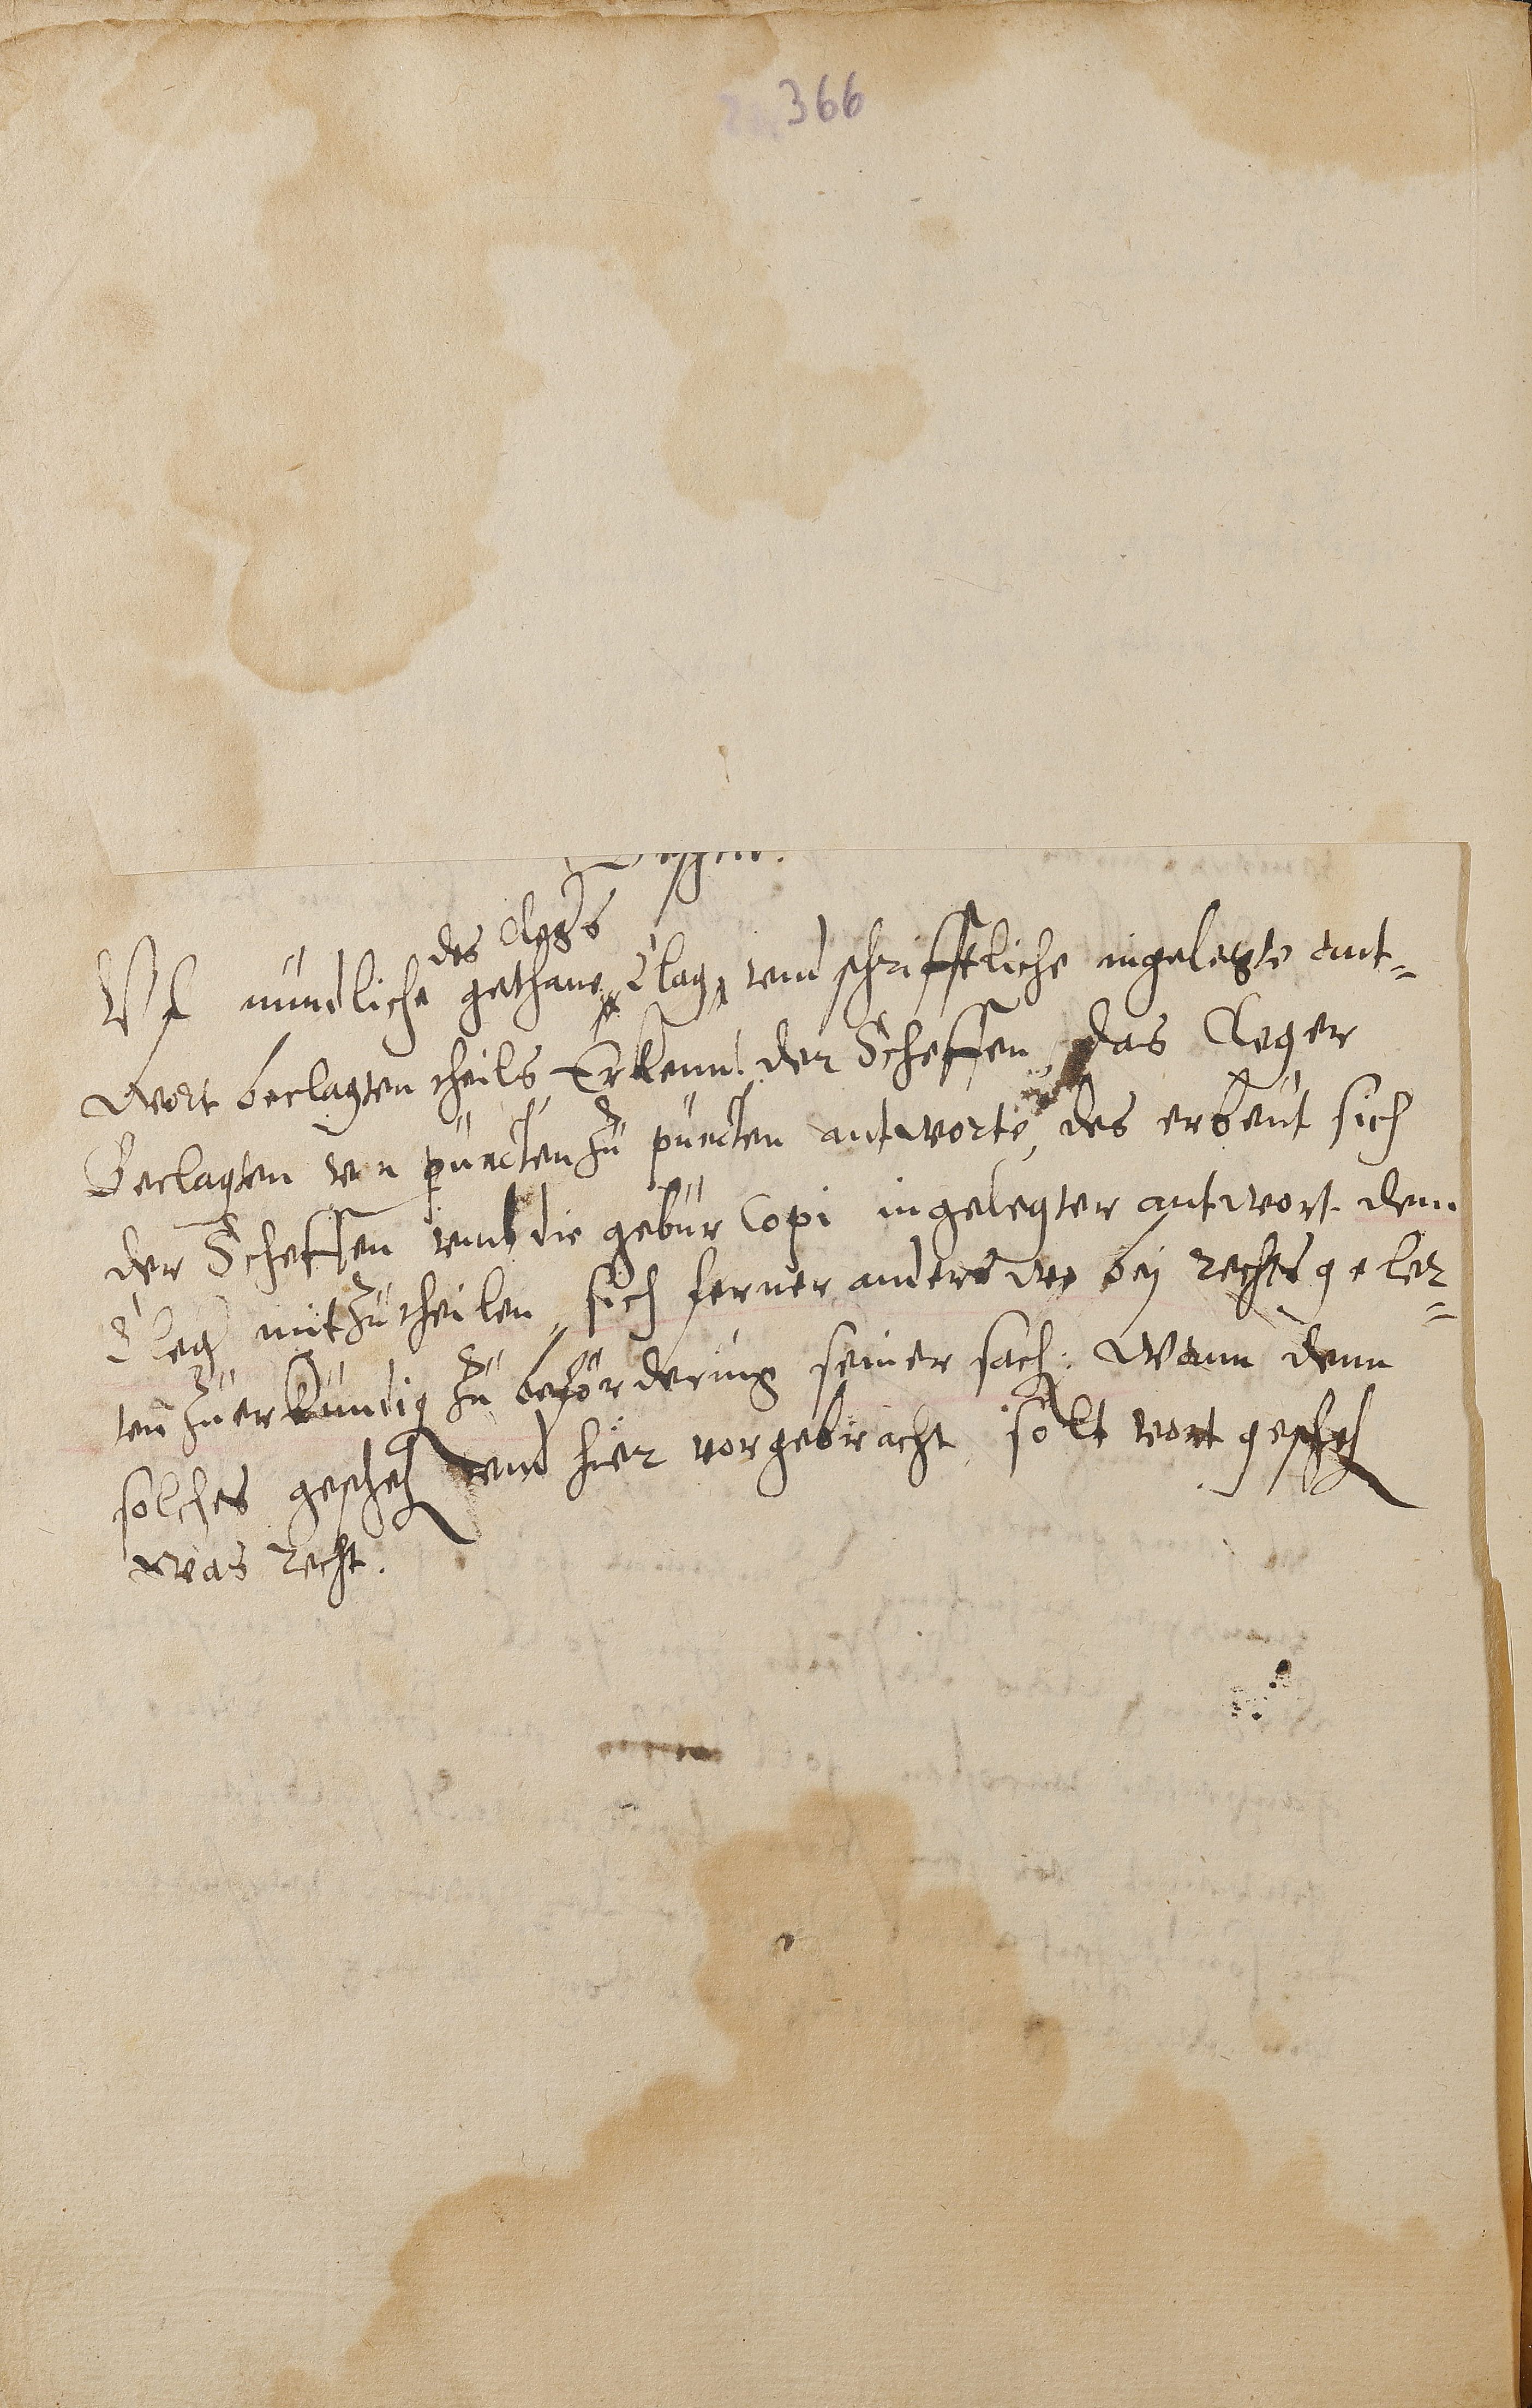 366
des Clegers
Vf mündliche gethane Clag, vnd schrifftliche ingelegte ant-
wort beclagten theils, Erkennt der Scheffen, das Cleger
Beclagten von puncten zu puncten antworte, des erbeut sich
der Scheffen vmb die gebür Copi ingelegter antwort dem
Cleger mitzutheilen, sich ferner anderswo bej rechtsgeler-
ten zuerkündigen zu beförderung seiner sach: Wann denn
solches geschehen vnd hier vorgebracht, solt vort geschehen
was recht.